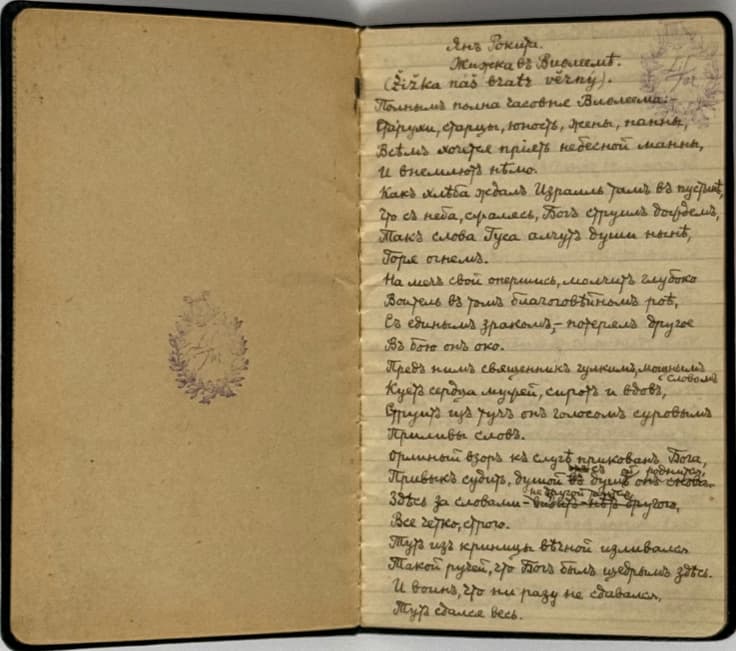 Янъ Рокита.
Жижка въ Виѳлеемѣ.
(Žižka náš bratr věrný).
Полнымъ полна часовня Виѳлеема:
Старухи, старцы, юность, жены, панны,
Всѣмъ хочется пріять небесной манны,
И внемлютъ нѣмо.
Какъ хлѣба ждалъ Израиль тамъ въ пустынѣ,
Что съ неба, сжалясь, Богъ струилъ дождемъ,
Такъ слова Гуса алчутъ души нынѣ,
Горя огнемъ.
На мечъ свой опершись, молчитъ глубоко
Воитель въ томъ благоговѣйномъ роѣ,
Съ единымъ зракомъ, – потерялъ другое
Въ бою онъ око.
Предъ нимъ священникъ гулкимъ, мощнымъ
словомъ
Куетъ сердца мужей, сиротъ и вдовъ,
Струитъ изъ тучъ онъ голосомъ суровымъ
Приливы словъ.
Орлиный взоръ къ слугѣ прикованъ Бога,
съ ней роднится,
Привыкъ судить, душой въ душѣ онъ снова
не другой таится
Здѣсь за словами – видитъ – нѣтъ другого,
Все четко, строго.
Тутъ изъ криницы вѣчной изливался
Такой ручей, что Богъ былъ щедрымъ здѣсь.
И воинъ, что ни разу не сдавался,
Тутъ сдался весь.